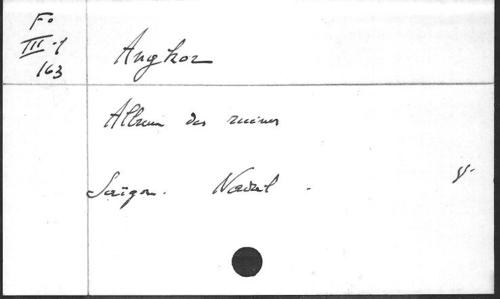 Fo
III-1
163
Angkor
Album des ruines
Saïgon. Nadal.